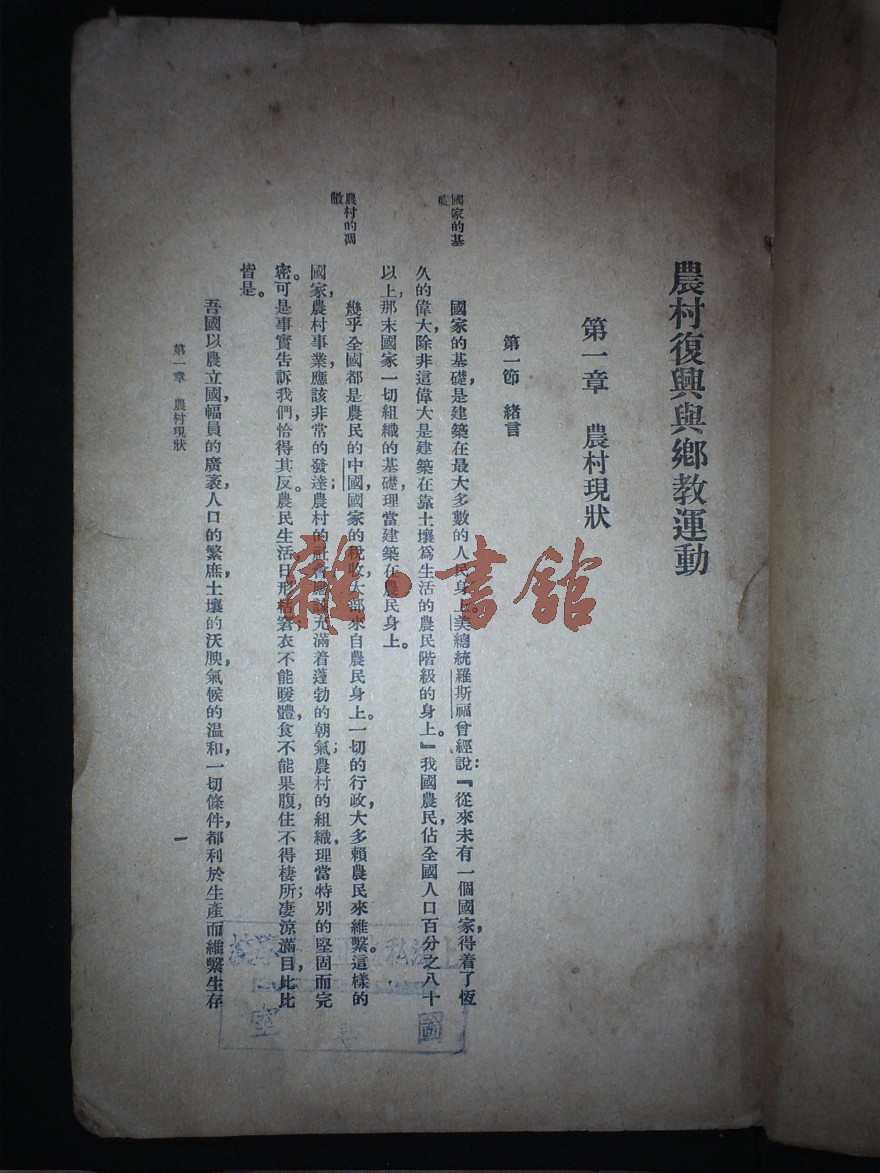 農村復興與鄉教運動
第一章　農村現狀
第一節　緒言
國家的基
礎
國家的基礎，是建築在最大多數的人民身上。美總統羅斯福曾經說：『從來未有一個國家，得着了恆
久的偉大，除非這偉大是建築在靠土壤爲生活的農民階級的身上。』我國農民，佔全國人口百分之八十
以上，那末國家一切組織的基礎，理當建築在農民身上。
農村的凋
敝
幾乎全國都是農民的中國，國家的稅收，大部來自農民身上。一切的行政，大多賴農民來維繫。這樣的
國家，農村事業，應該非常的發達；農村的社會，應該充滿着蓬勃的朝氣；農村的組織，理當特別的堅固而完
密。可是事實告訴我們，恰得其反。農民生活，日形枯窘，衣不能暖體，食不能果腹，住不得棲所；凄涼滿目，比比
皆是。
吾國以農立國，幅員的廣袤，人口的繁庶，土壤的沃腴，氣候的溫和，一切條件，都利於生產而維繫生存
第一章　農村現狀
一
雜·書館
圖
室